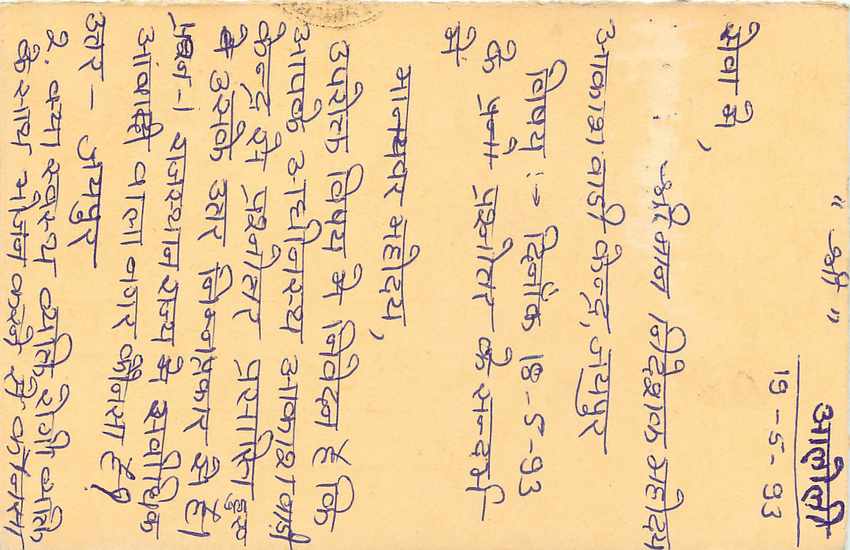 " श्री "
आलोली
19-5-93
सेवा में,
श्रीमान निदेशक महोदय
आकाशवाणी केन्द्र, जयपुर
विषय :- दिनांक 18-5-93
के प्रश्नोत्तर के सन्दर्भ
में
मान्यवर महोदय,
उपरोक्त विषय में निवेदन है कि
आपके आधिनस्थ आकाशवाणी
केन्द्र से प्रश्नोत्तर प्रसारित हुए
थे उसके उत्तर निम्न प्रकार से है।
प्रश्न-1 राजस्थान राज्य में सर्वाधिक
आबादी वाला नगर कौनसा है?
उत्तर - जयपुर
2. क्या स्वस्थ व्यक्ति रोगी व्यक्ति
के साथ भोजन करने से कौनसा